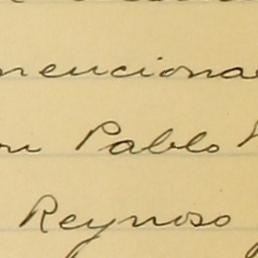 menciona
Pablo
Reynoso